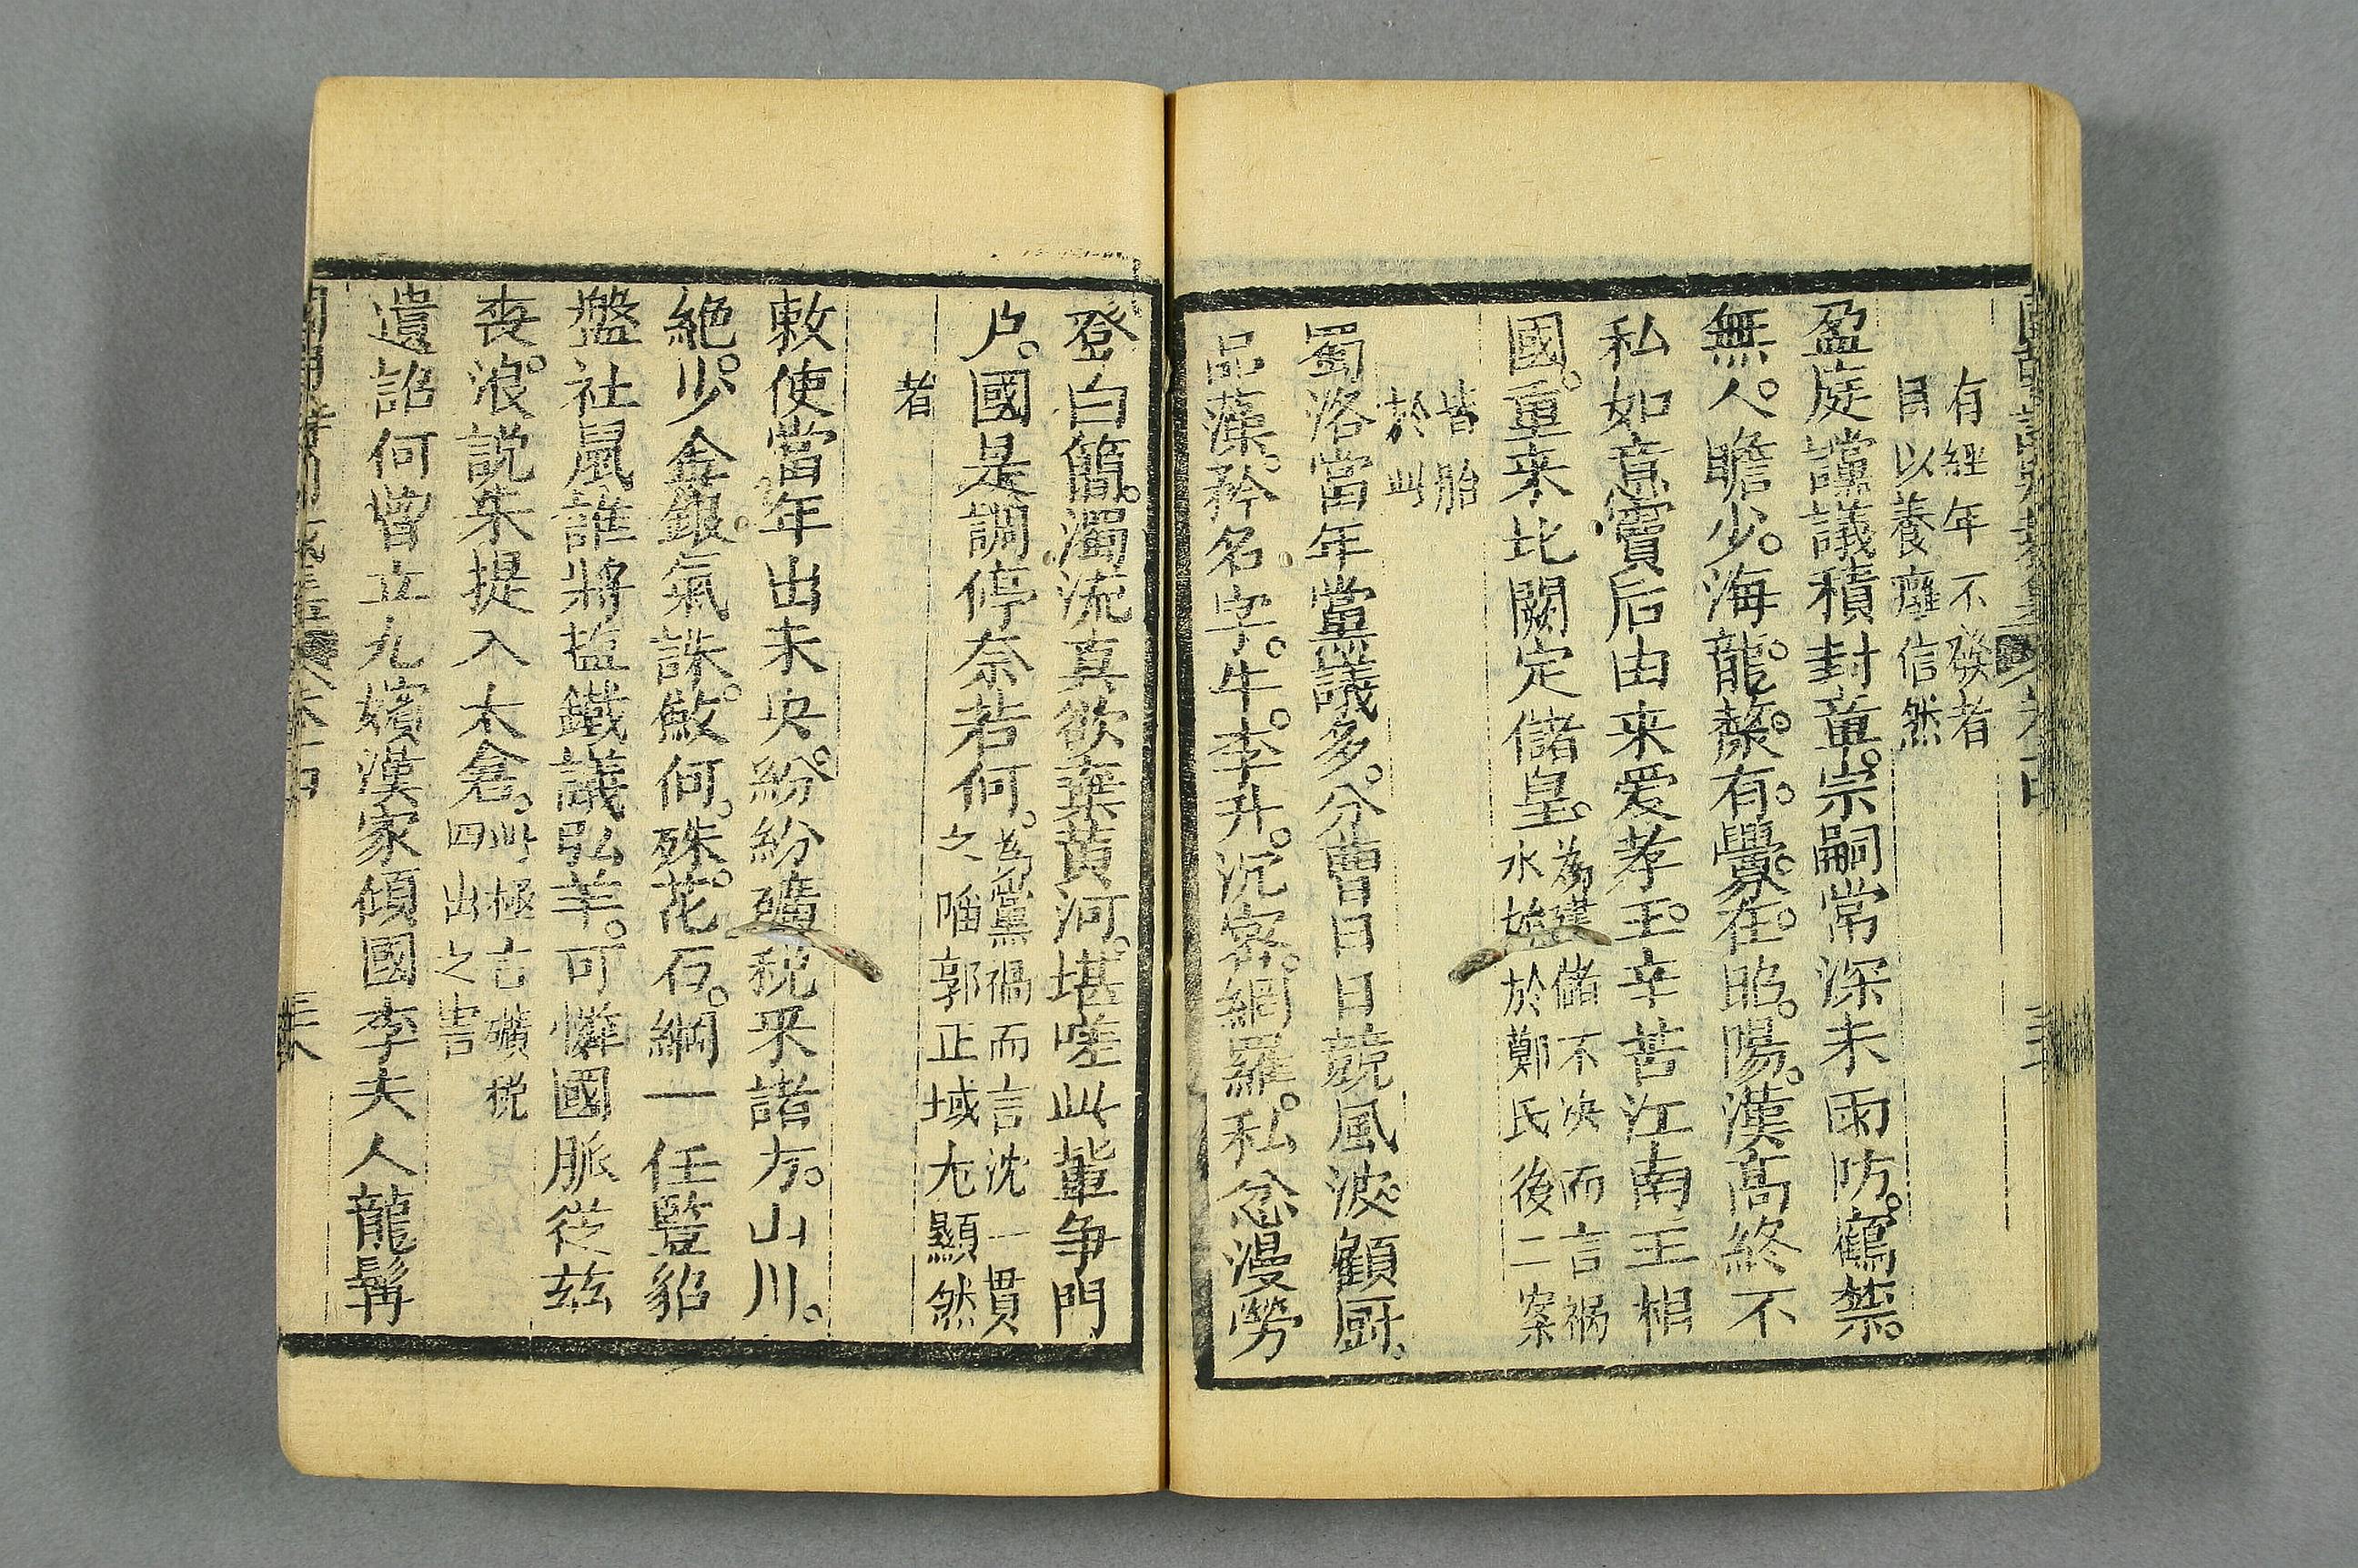 有經年不發者
目以養癰信然
盈庭讜議積封章。宗嗣常深未雨防。鶴禁。
無。人。瞻。少。海。龍。漦。有。釁。在。昭。陽。漢高終不
私如意。竇后由来爱孝王。辛苦江南王相
國。重来北闕定儲皇。為建儲不决而言禍
水始於鄭氏後二案
皆胎
於此
蜀洛當年黨議多。分曹日日競風波。顧厨。
品藻。矜名字。牛。李升。沉密。網羅。私忿漫勞
登白簡。濁流真欲棄黄河。堪嗟此輩争門
户。國是調停奈若何。為黨禍而言沈一貫
之唯郭正域尢顯然
者
敕使當年出未央。紛紛礦税采諸方。山川。
絶。少。金銀。氣。誅。斂。何。殊。花。石。綱一任豎貂
盤社鼠誰將塩鐵議弘羊。可憐國脈從兹
喪。浪説朱提入太倉。此極言礦税
四出之害
遺詔何曾立九嬪漢家傾國李夫人龍髯